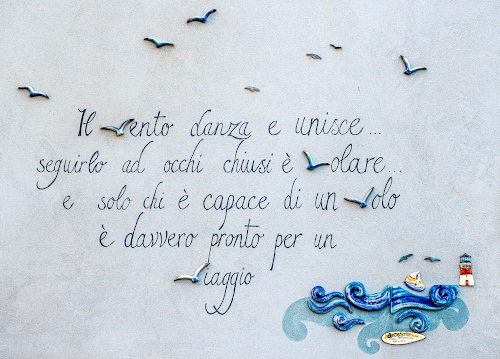 Il vento danza e unisce...
seguirlo ad occhi chiusi è volare...
e solo chi è capace di un volo
è davvero pronto per un
viaggio